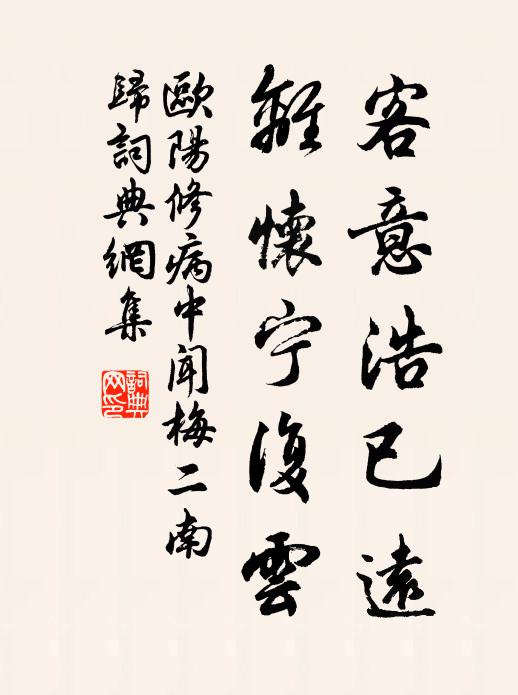 客意浩已遠
離懷宁復雲
歐陽修病中聞梅二南
歸詞典網集
詞典網印